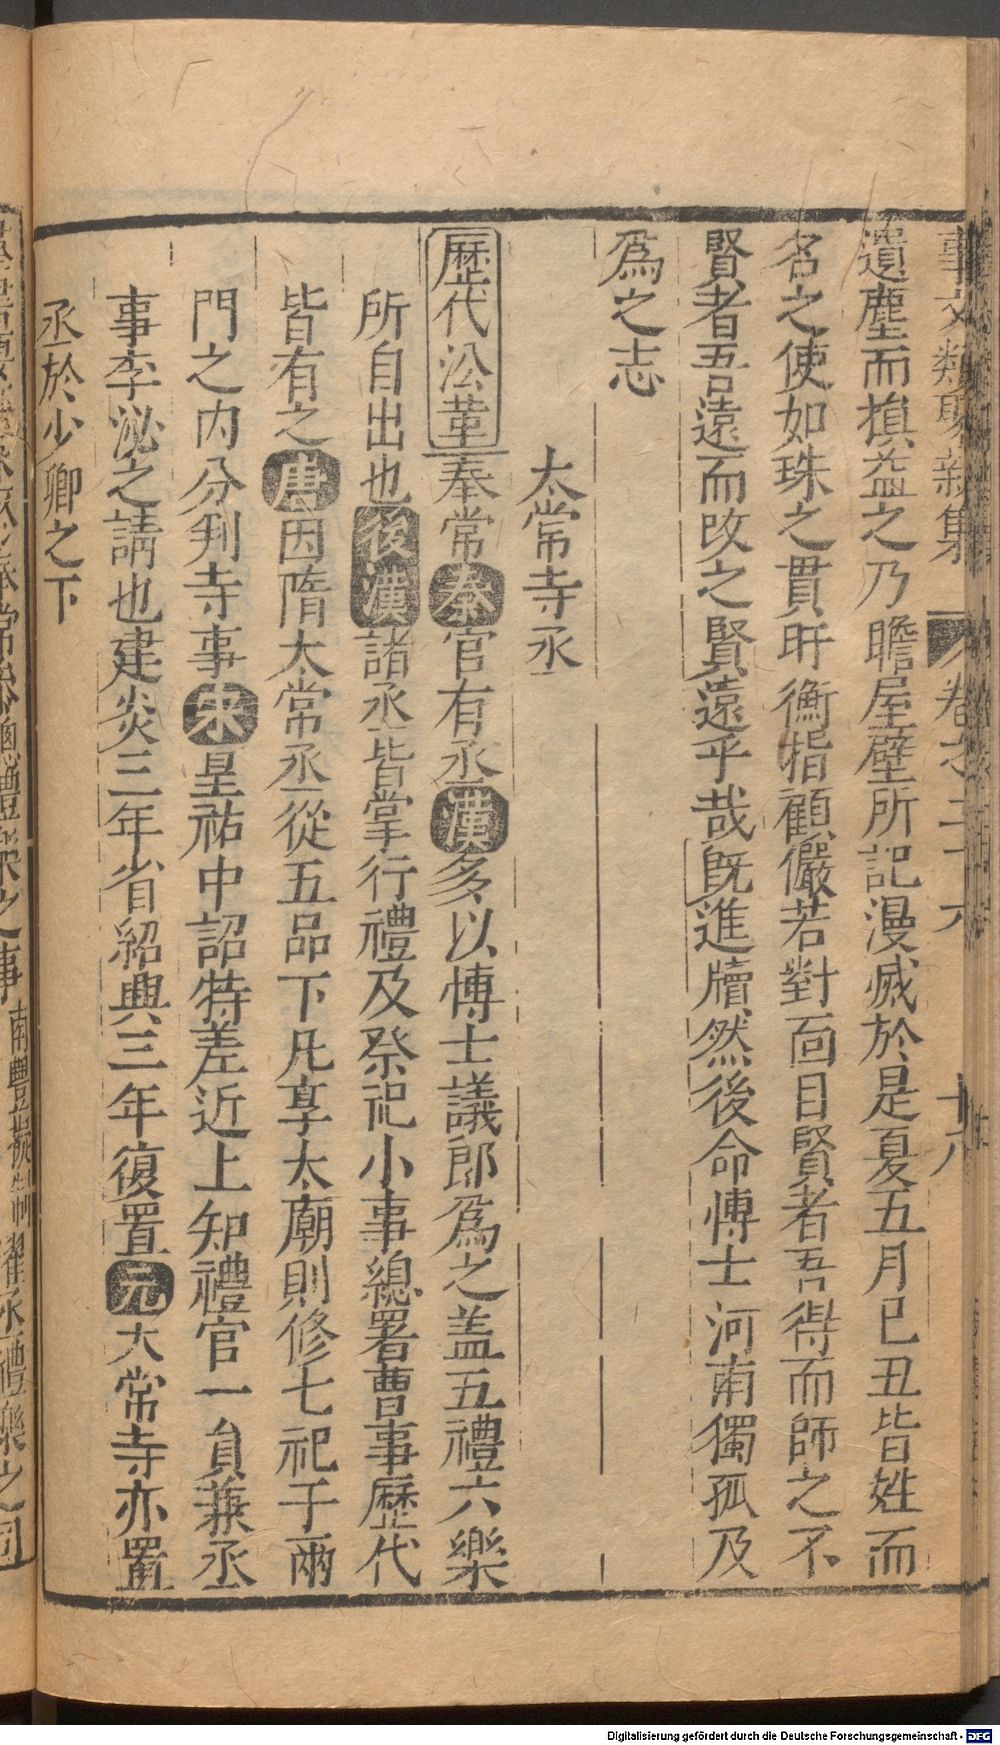 事文類聚新集　卷之二十六　十八
遺塵而損益之乃瞻屋壁所記漫滅於是夏五月已丑皆姓而
名之使如珠之貫盱衡指顧儼若對面目賢者吾得而師之不
賢者吾遠而改之賢遠乎哉旣進牘然後命博士河南獨孤及
爲之志
太常寺丞
歷代沿革奉常秦官有丞漢多以博士議郎爲之盖五禮六樂
所自出也後漢諸丞皆掌行禮及祭祀小事總署曹事歷代
皆有之唐因隋太常丞從五品下凡享太廟則修七祀于兩
門之內分判寺事宋皇祐中詔特差近上知禮官一員兼丞
事李泌之請也建炎三年省紹興三年復置元大常寺亦置
丞於少卿之下
Digitalisierung gefördert durch die Deutsche Forschungsgemeinschaft - DFG